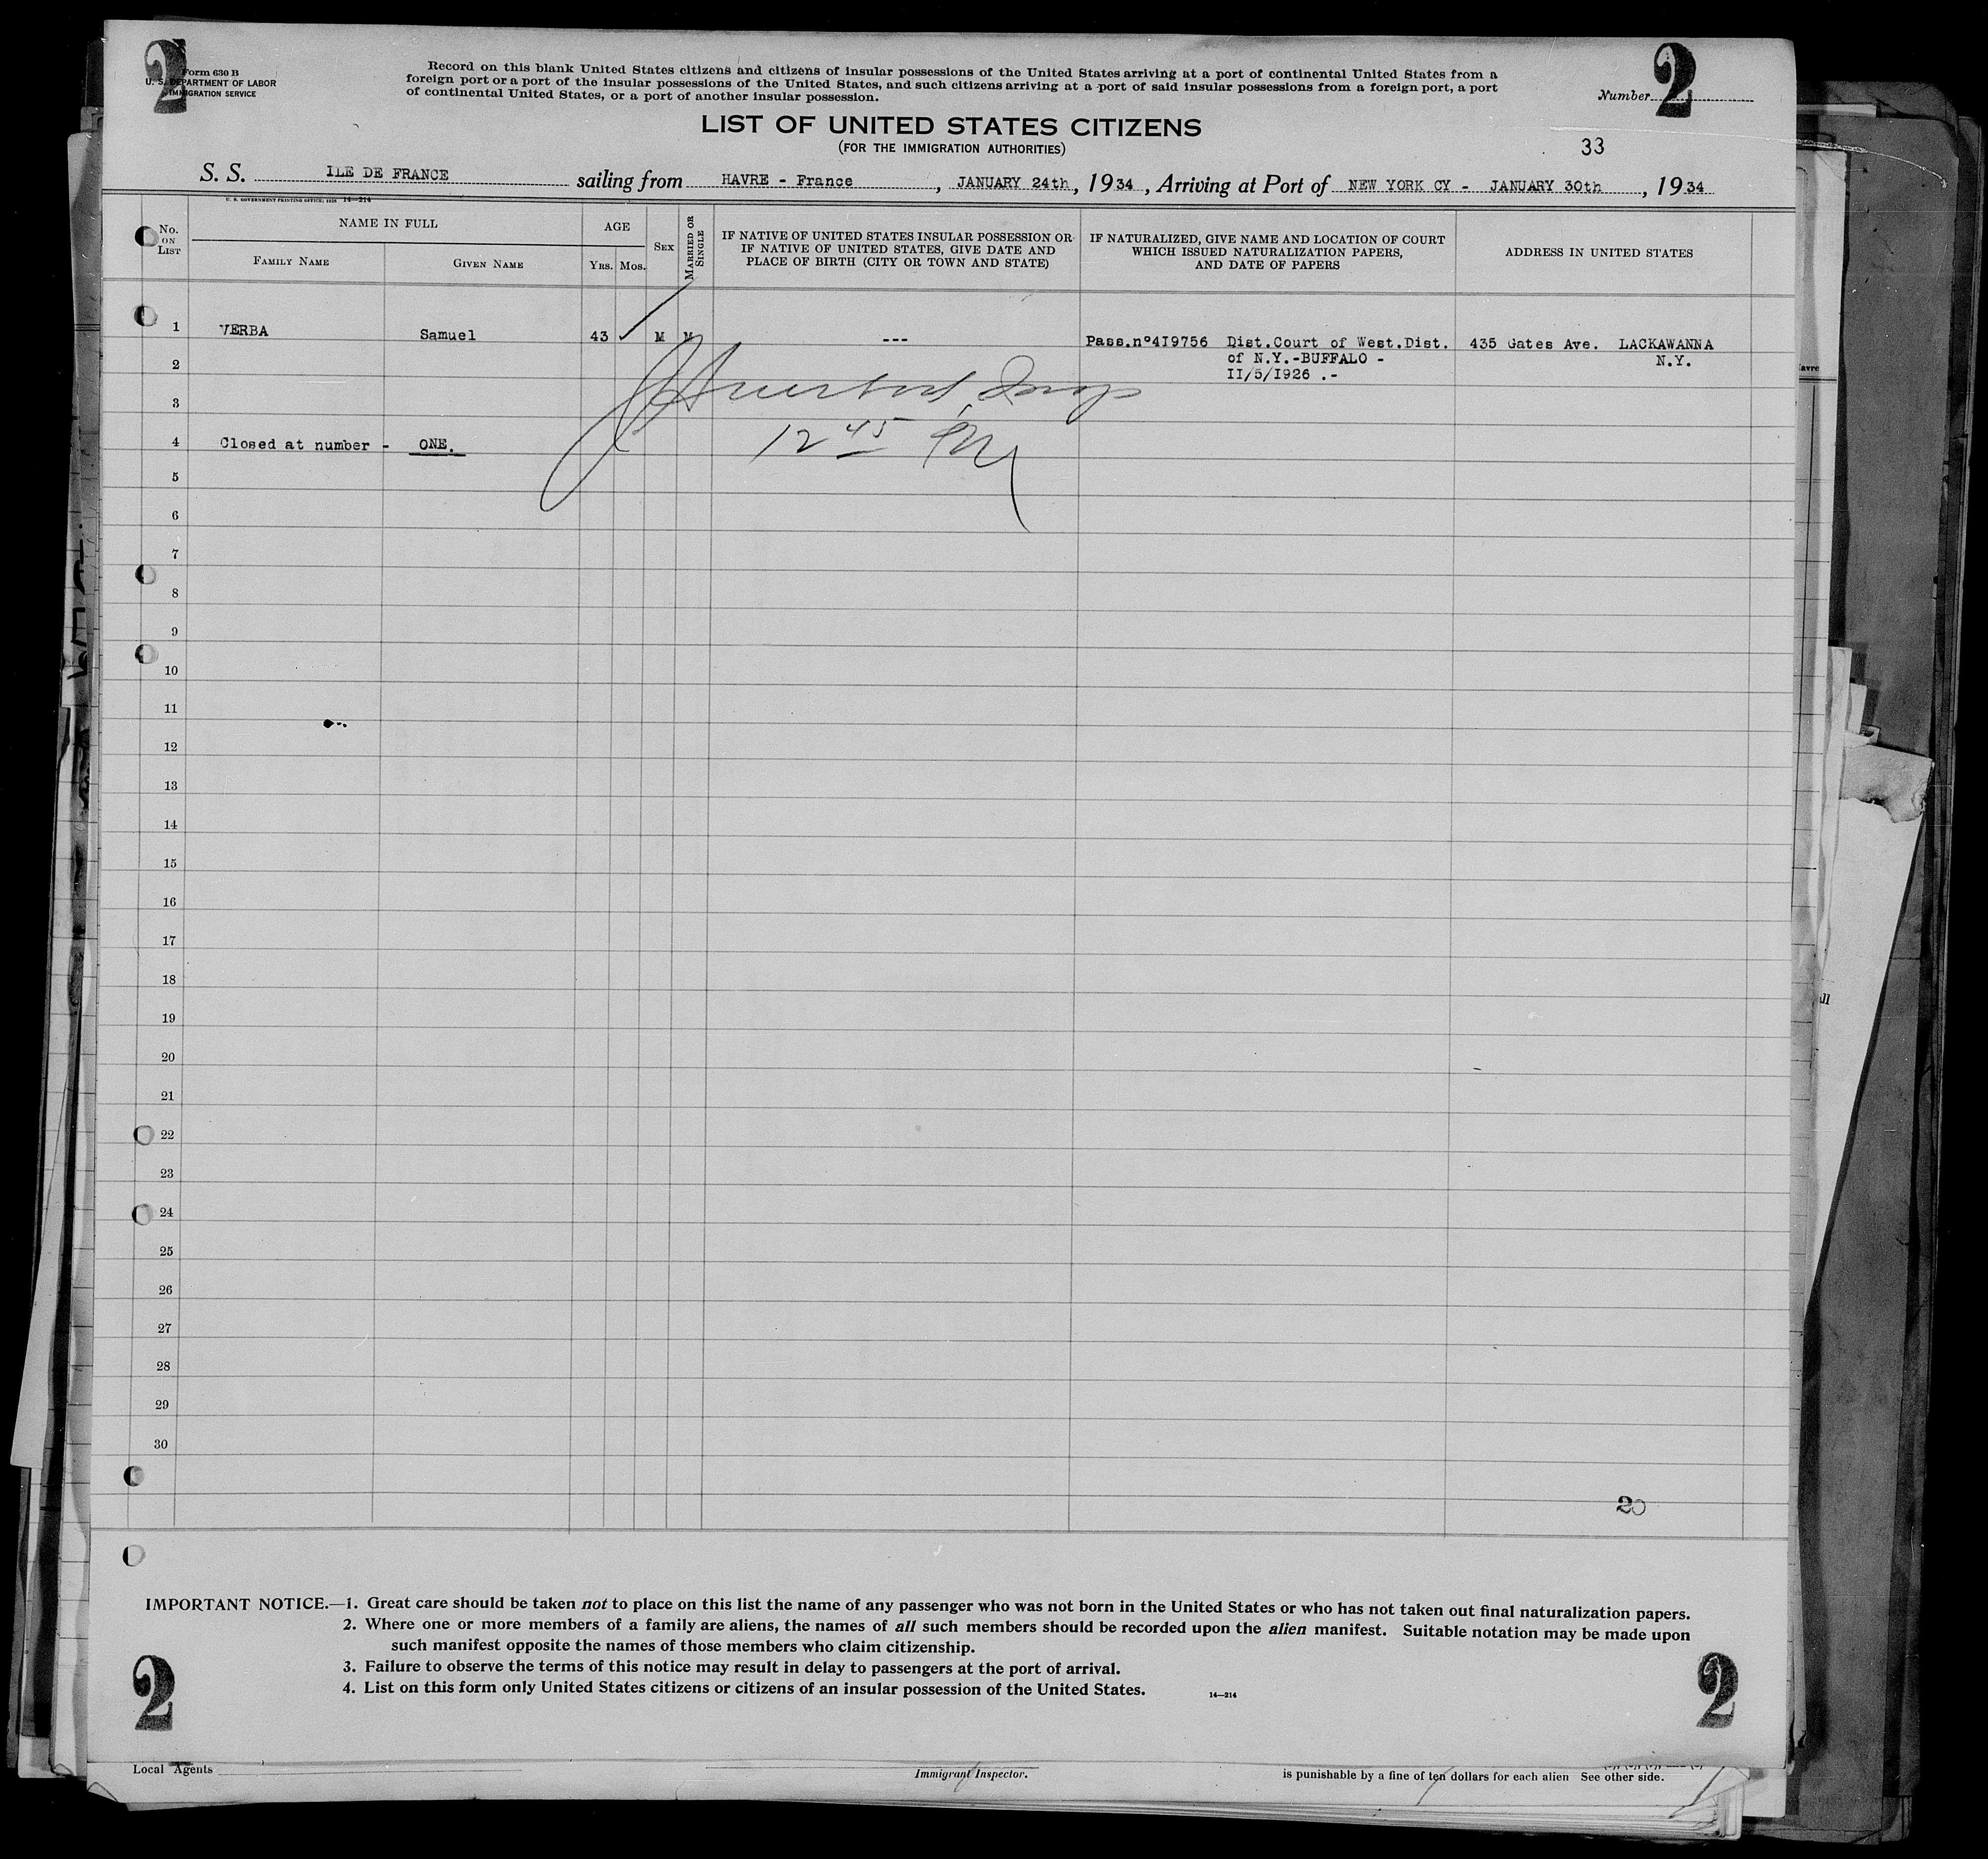 2
2
Form 630 B
U. S. DEPARTMENT OF LABOR
IMMIGRATION SERVICE
Record on this blank United States citizens and citizens of insular possessions of the United States arriving at a port of continental United States from a
foreign port or a port of the insular possessions of the United States, and such citizens arriving at a port of said insular possessions from a foreign port, a port
of continental United States, or a port of another insular possession.
Number
LIST OF UNITED STATES CITIZENS
(FOR THE IMMIGRATION AUTHORITIES)
33
S. S. ILE DE FRANCE sailing from HAVRE - France , JANUARY 24th, 1934 , Arriving at Port of NEW YORK CY - JANUARY 30th , 1934
U. S. GOVERNMENT PRINTING OFFICE: 14—214
No. ON LIST
NAME IN FULL
FAMILY NAME
GIVEN NAME
AGE
YRS. MOS.
SEX
MARRIED OR SINGLE
IF NATIVE OF UNITED STATES INSULAR POSSESSION OR
IF NATIVE OF UNITED STATES, GIVE DATE AND
PLACE OF BIRTH (CITY OR TOWN AND STATE)
IF NATURALIZED, GIVE NAME AND LOCATION OF COURT
WHICH ISSUED NATURALIZATION PAPERS,
AND DATE OF PAPERS
ADDRESS IN UNITED STATES
1 VERBA Samuel 43 M M --- Pass.nº4I9756 Dist.Court of West.Dist. 435 Gates Ave. LACKAWANNA
of N.Y.-BUFFALO - N.Y.
II/5/I926 .-
2
3
12 45 PM
4 Closed at number - ONE.
5
6
7
8
9
10
11
12
13
14
15
16
17
18
19
20
21
22
23
24
25
26
27
28
29
30
20
IMPORTANT NOTICE.—1. Great care should be taken not to place on this list the name of any passenger who was not born in the United States or who has not taken out final naturalization papers.
2. Where one or more members of a family are aliens, the names of all such members should be recorded upon the alien manifest. Suitable notation may be made upon
such manifest opposite the names of those members who claim citizenship.
3. Failure to observe the terms of this notice may result in delay to passengers at the port of arrival.
4. List on this form only United States citizens or citizens of an insular possession of the United States. 14—214
2
2
Local Agents
Immigrant Inspector.
is punishable by a fine of ten dollars for each alien See other side.